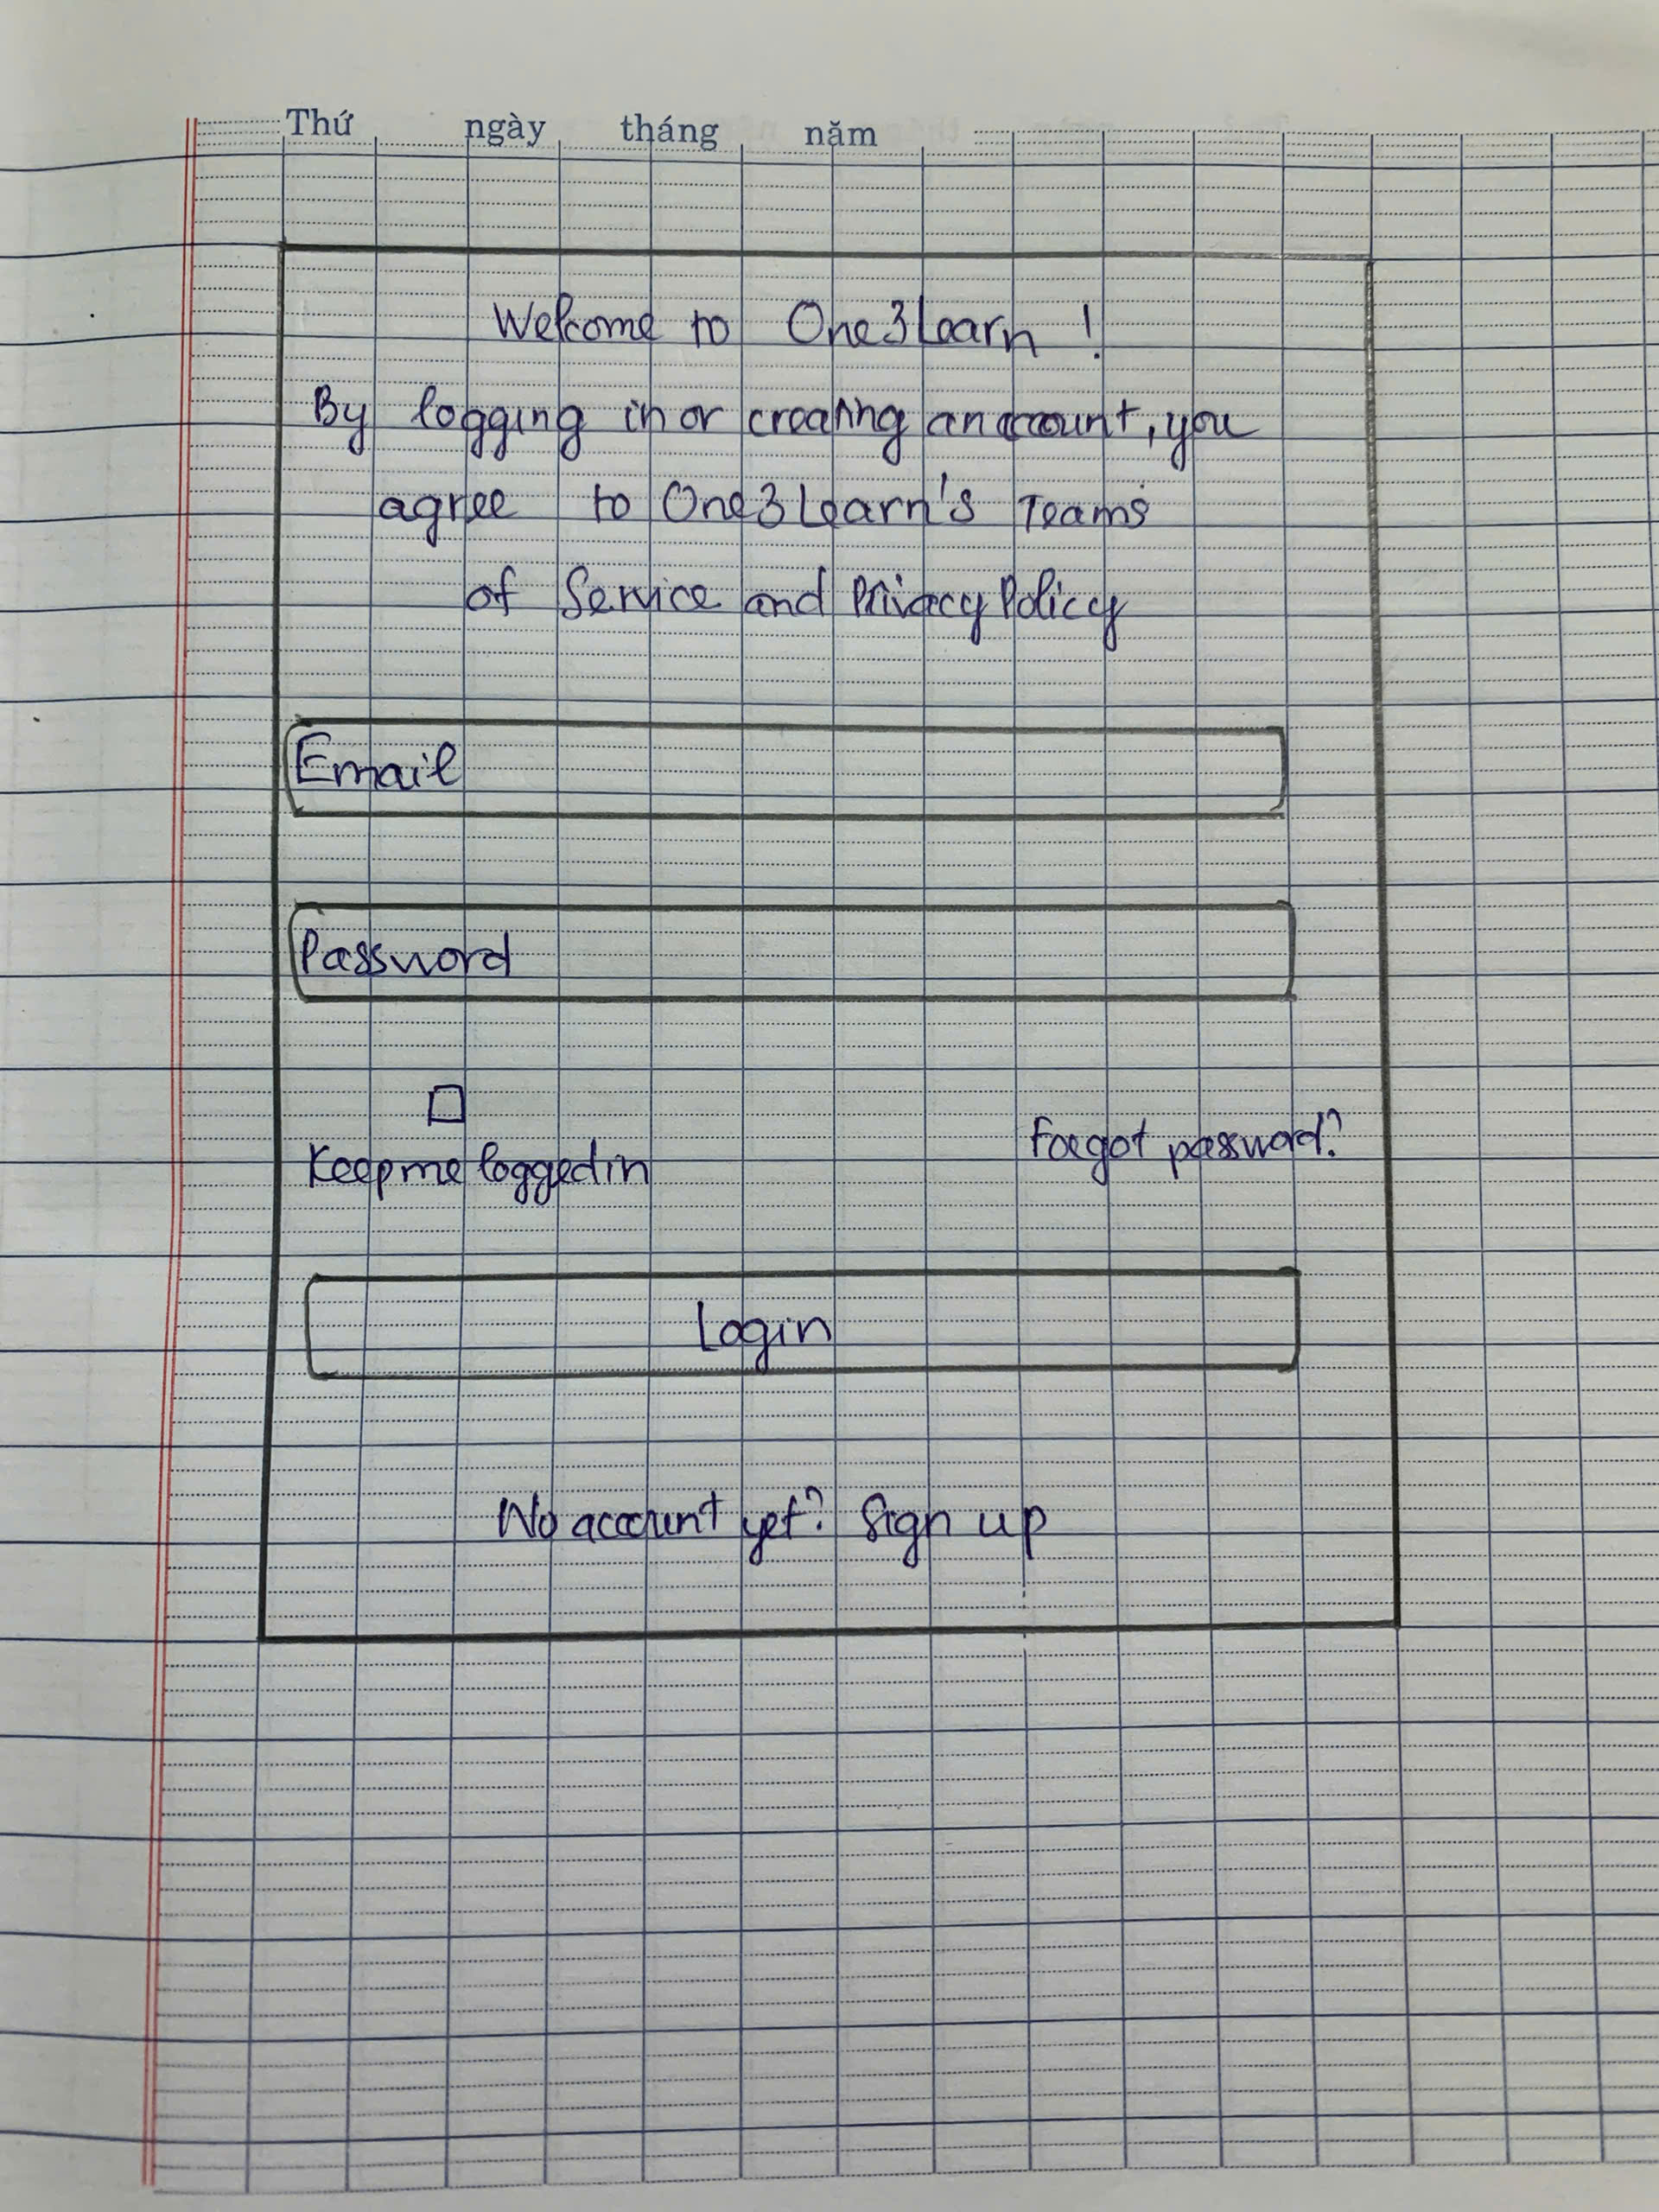 Thứ ngày tháng năm
Welcome to One3Learn !
By logging in or creating an account, you
agree to One3Learn's Teams
of Service and Privacy Policy
Email
Password
Keep me logged in
Forgot password?
Login
No account yet? Sign up